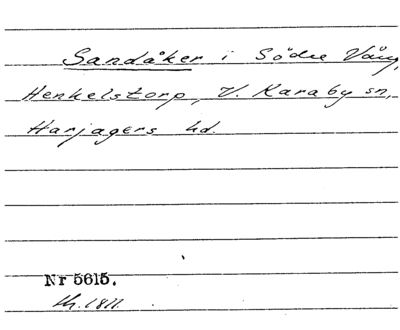 Sandåker i Södre Vång,
Henkelstorp, V. Karaby sn,
Harjagers hd.
Nr 5615.
1811.